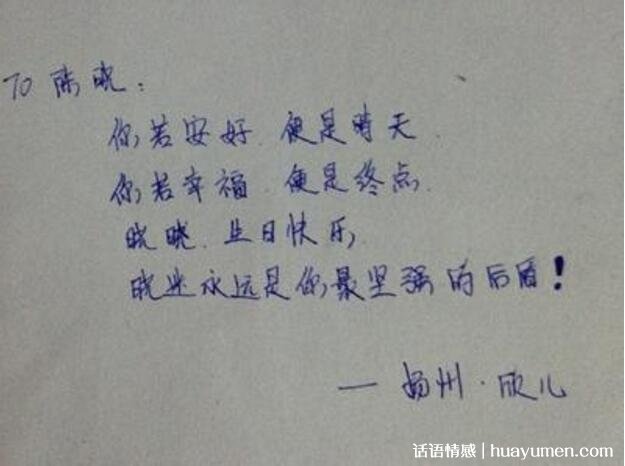 TO 陈晓：
你若安好．便是晴天．
你若幸福．便是终点．
晓晓．生日快乐，
晓迷永远是你最坚强的后盾！
— 扬州·欣儿
话语情感 | huayumen.com